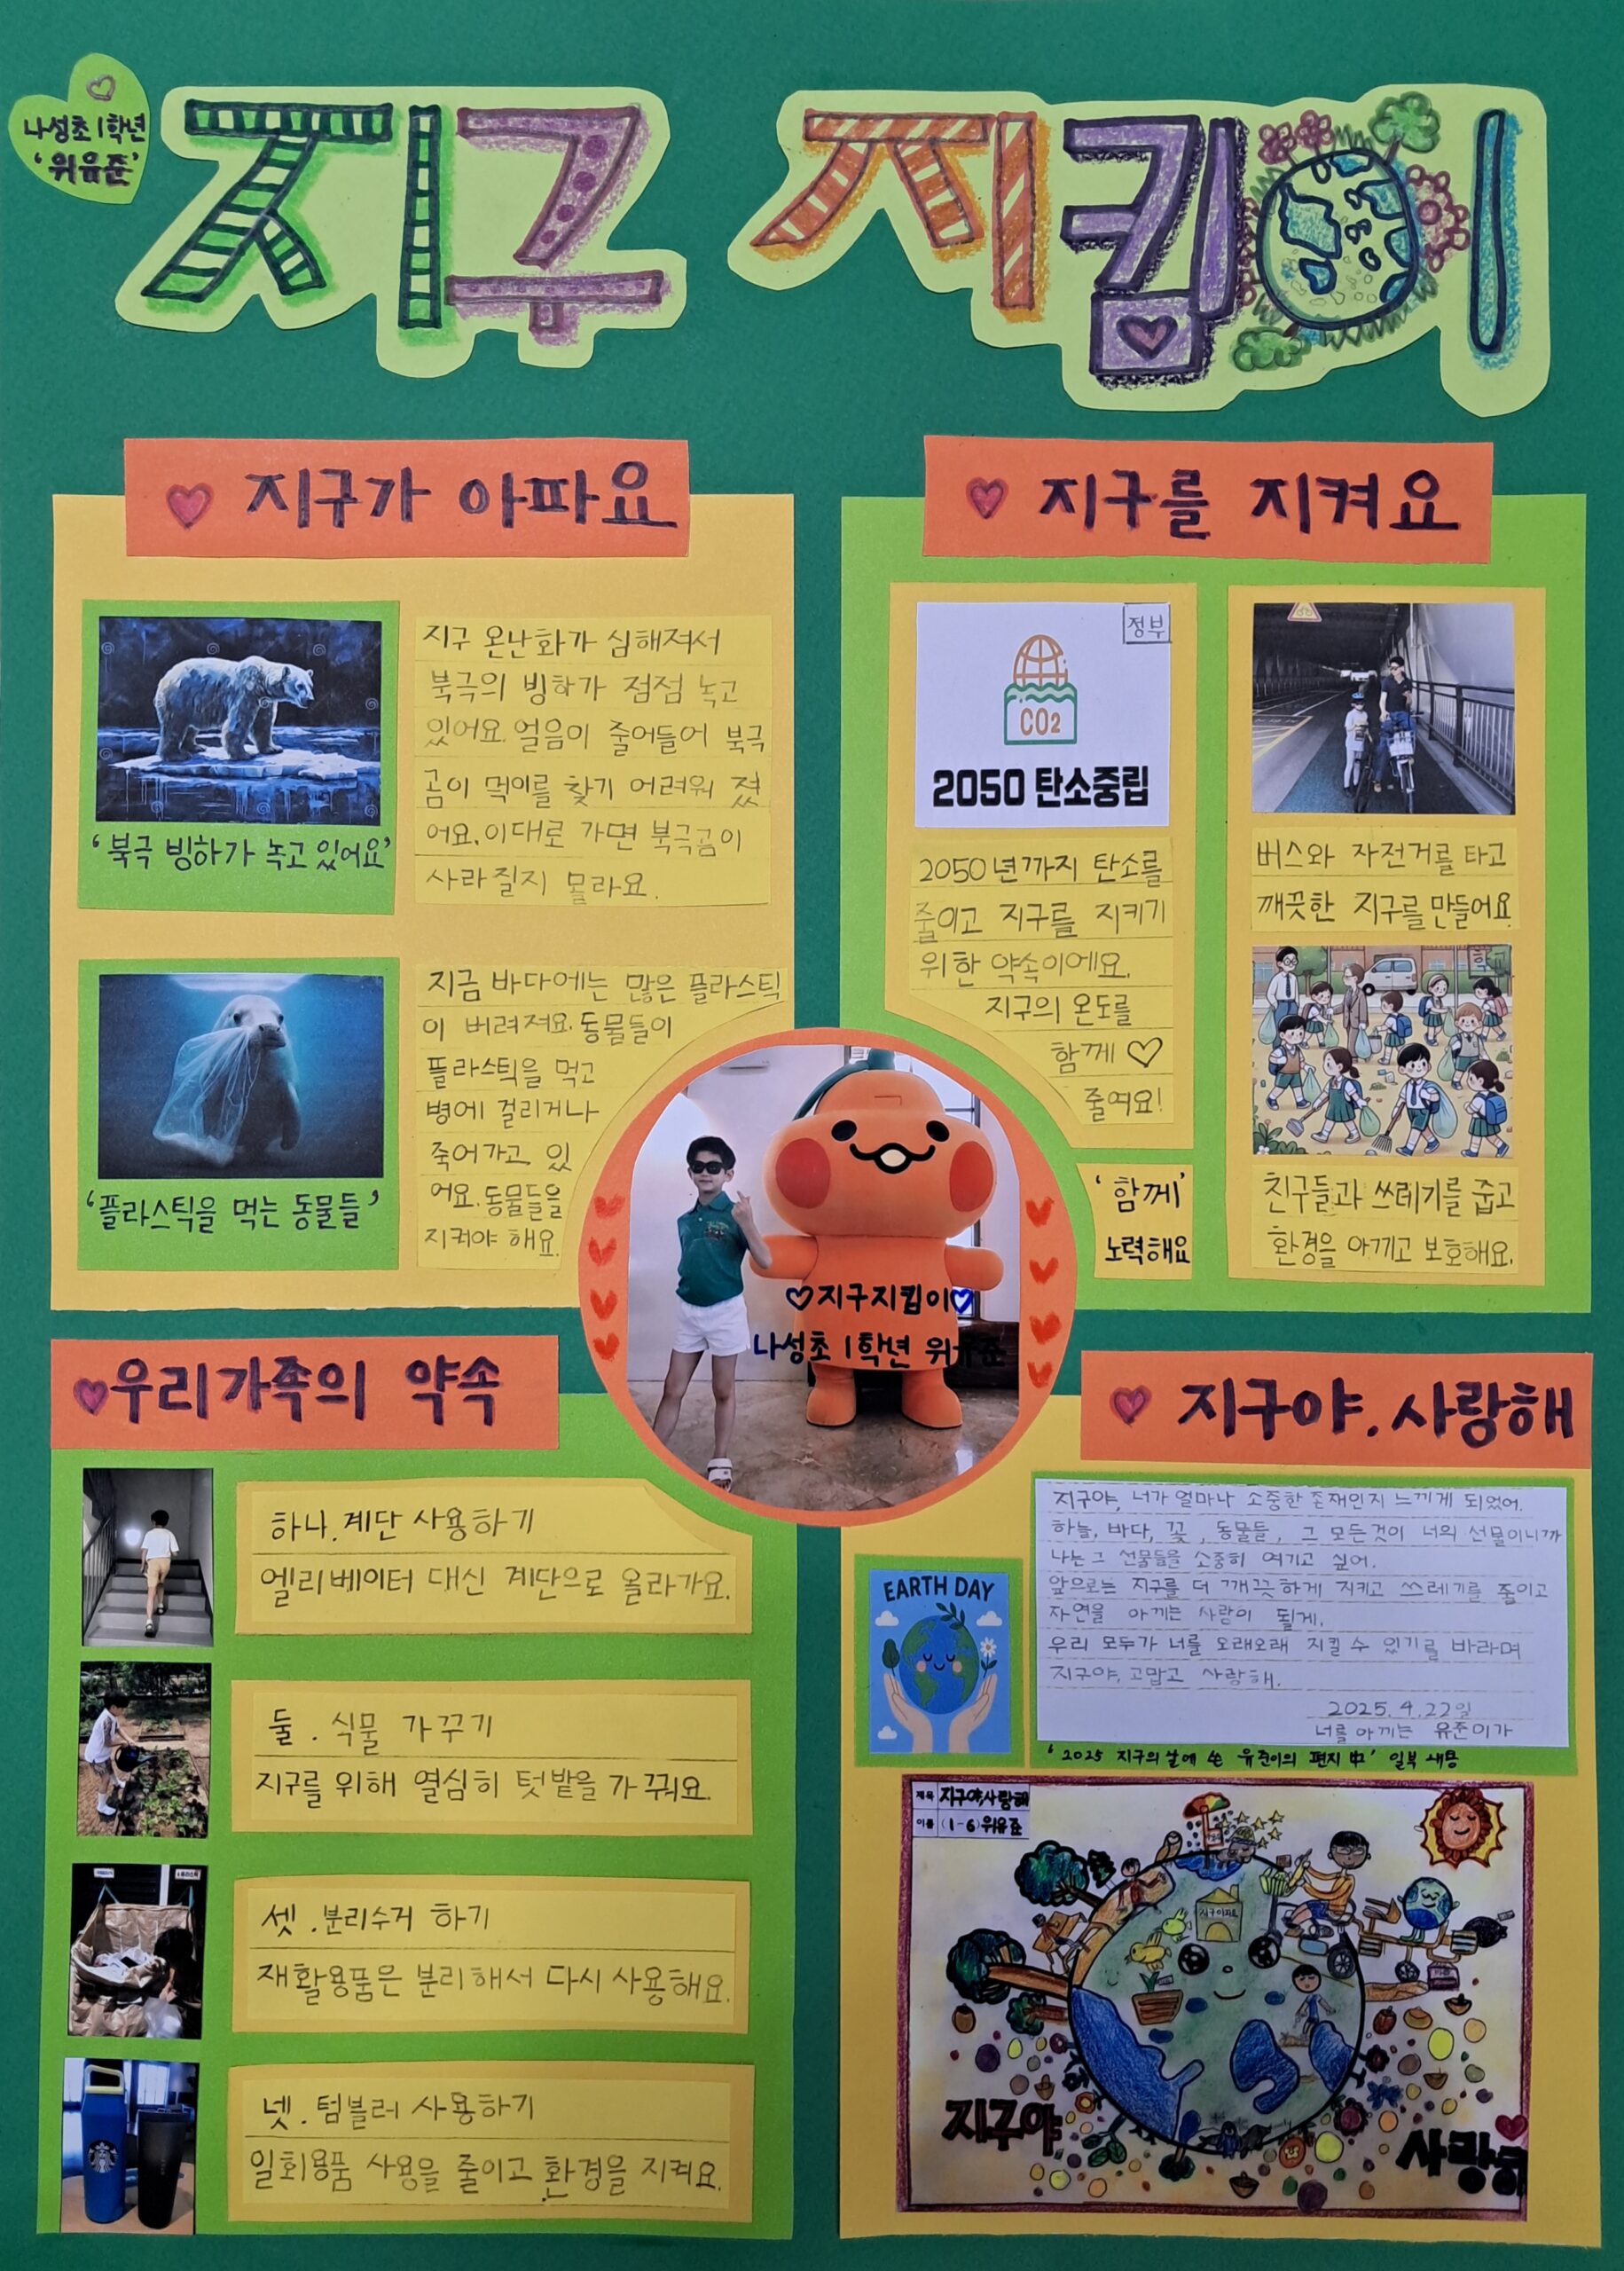 나성초 1학년
'위유준'
지구 지킴이
지구가 아파요
'북극 빙하가 녹고 있어요'
지구 온난화가 심해져서
북극의 빙하가 점점 녹고
있어요. 얼음이 줄어들어 북극
곰이 먹이를 찾기 어려워 졌
어요. 이대로 가면 북극곰이
사라질지 몰라요.
'플라스틱을 먹는 동물들'
지금 바다에는 많은 플라스틱
이 버려져요. 동물들이
플라스틱을 먹고
병에 걸리거나
죽어가고 있
어요. 동물들을
지켜야 해요.
지구를 지켜요
정부
CO2
2050 탄소중립
2050년까지 탄소를
줄이고 지구를 지키기
위한 약속이에요.
지구의 온도를
함께 ♡
줄여요!
'함께'
노력해요
버스와 자전거를 타고
깨끗한 지구를 만들어요
학교
친구들과 쓰레기를 줍고
환경을 아끼고 보호해요.
♡지구지킴이♡
나성초 1학년 위유준
우리가족의 약속
하나. 계단 사용하기
엘리베이터 대신 계단으로 올라가요.
둘. 식물 가꾸기
지구를 위해 열심히 텃밭을 가꿔요.
셋. 분리수거 하기
재활용품은 분리해서 다시 사용해요.
넷. 텀블러 사용하기
일회용품 사용을 줄이고 환경을 지켜요.
지구야. 사랑해
EARTH DAY
지구야, 너가 얼마나 소중한 존재인지 느끼게 되었어.
하늘, 바다, 꽃, 동물들, 그 모든것이 너의 선물이니까
나는 그 선물들을 소중히 여기고 싶어.
앞으로는 지구를 더 깨끗하게 지키고 쓰레기를 줄이고
자연을 아끼는 사람이 될게.
우리 모두가 너를 오래오래 지킬 수 있기를 바라며
지구야, 고맙고 사랑해.
2025. 4. 22일
너를 아끼는 유준이가
'2025 지구의 날에 쓴 유준이의 편지 中' 일부 내용
제목 지구야, 사랑해
이름 (1-6) 위유준
지구야
사랑해